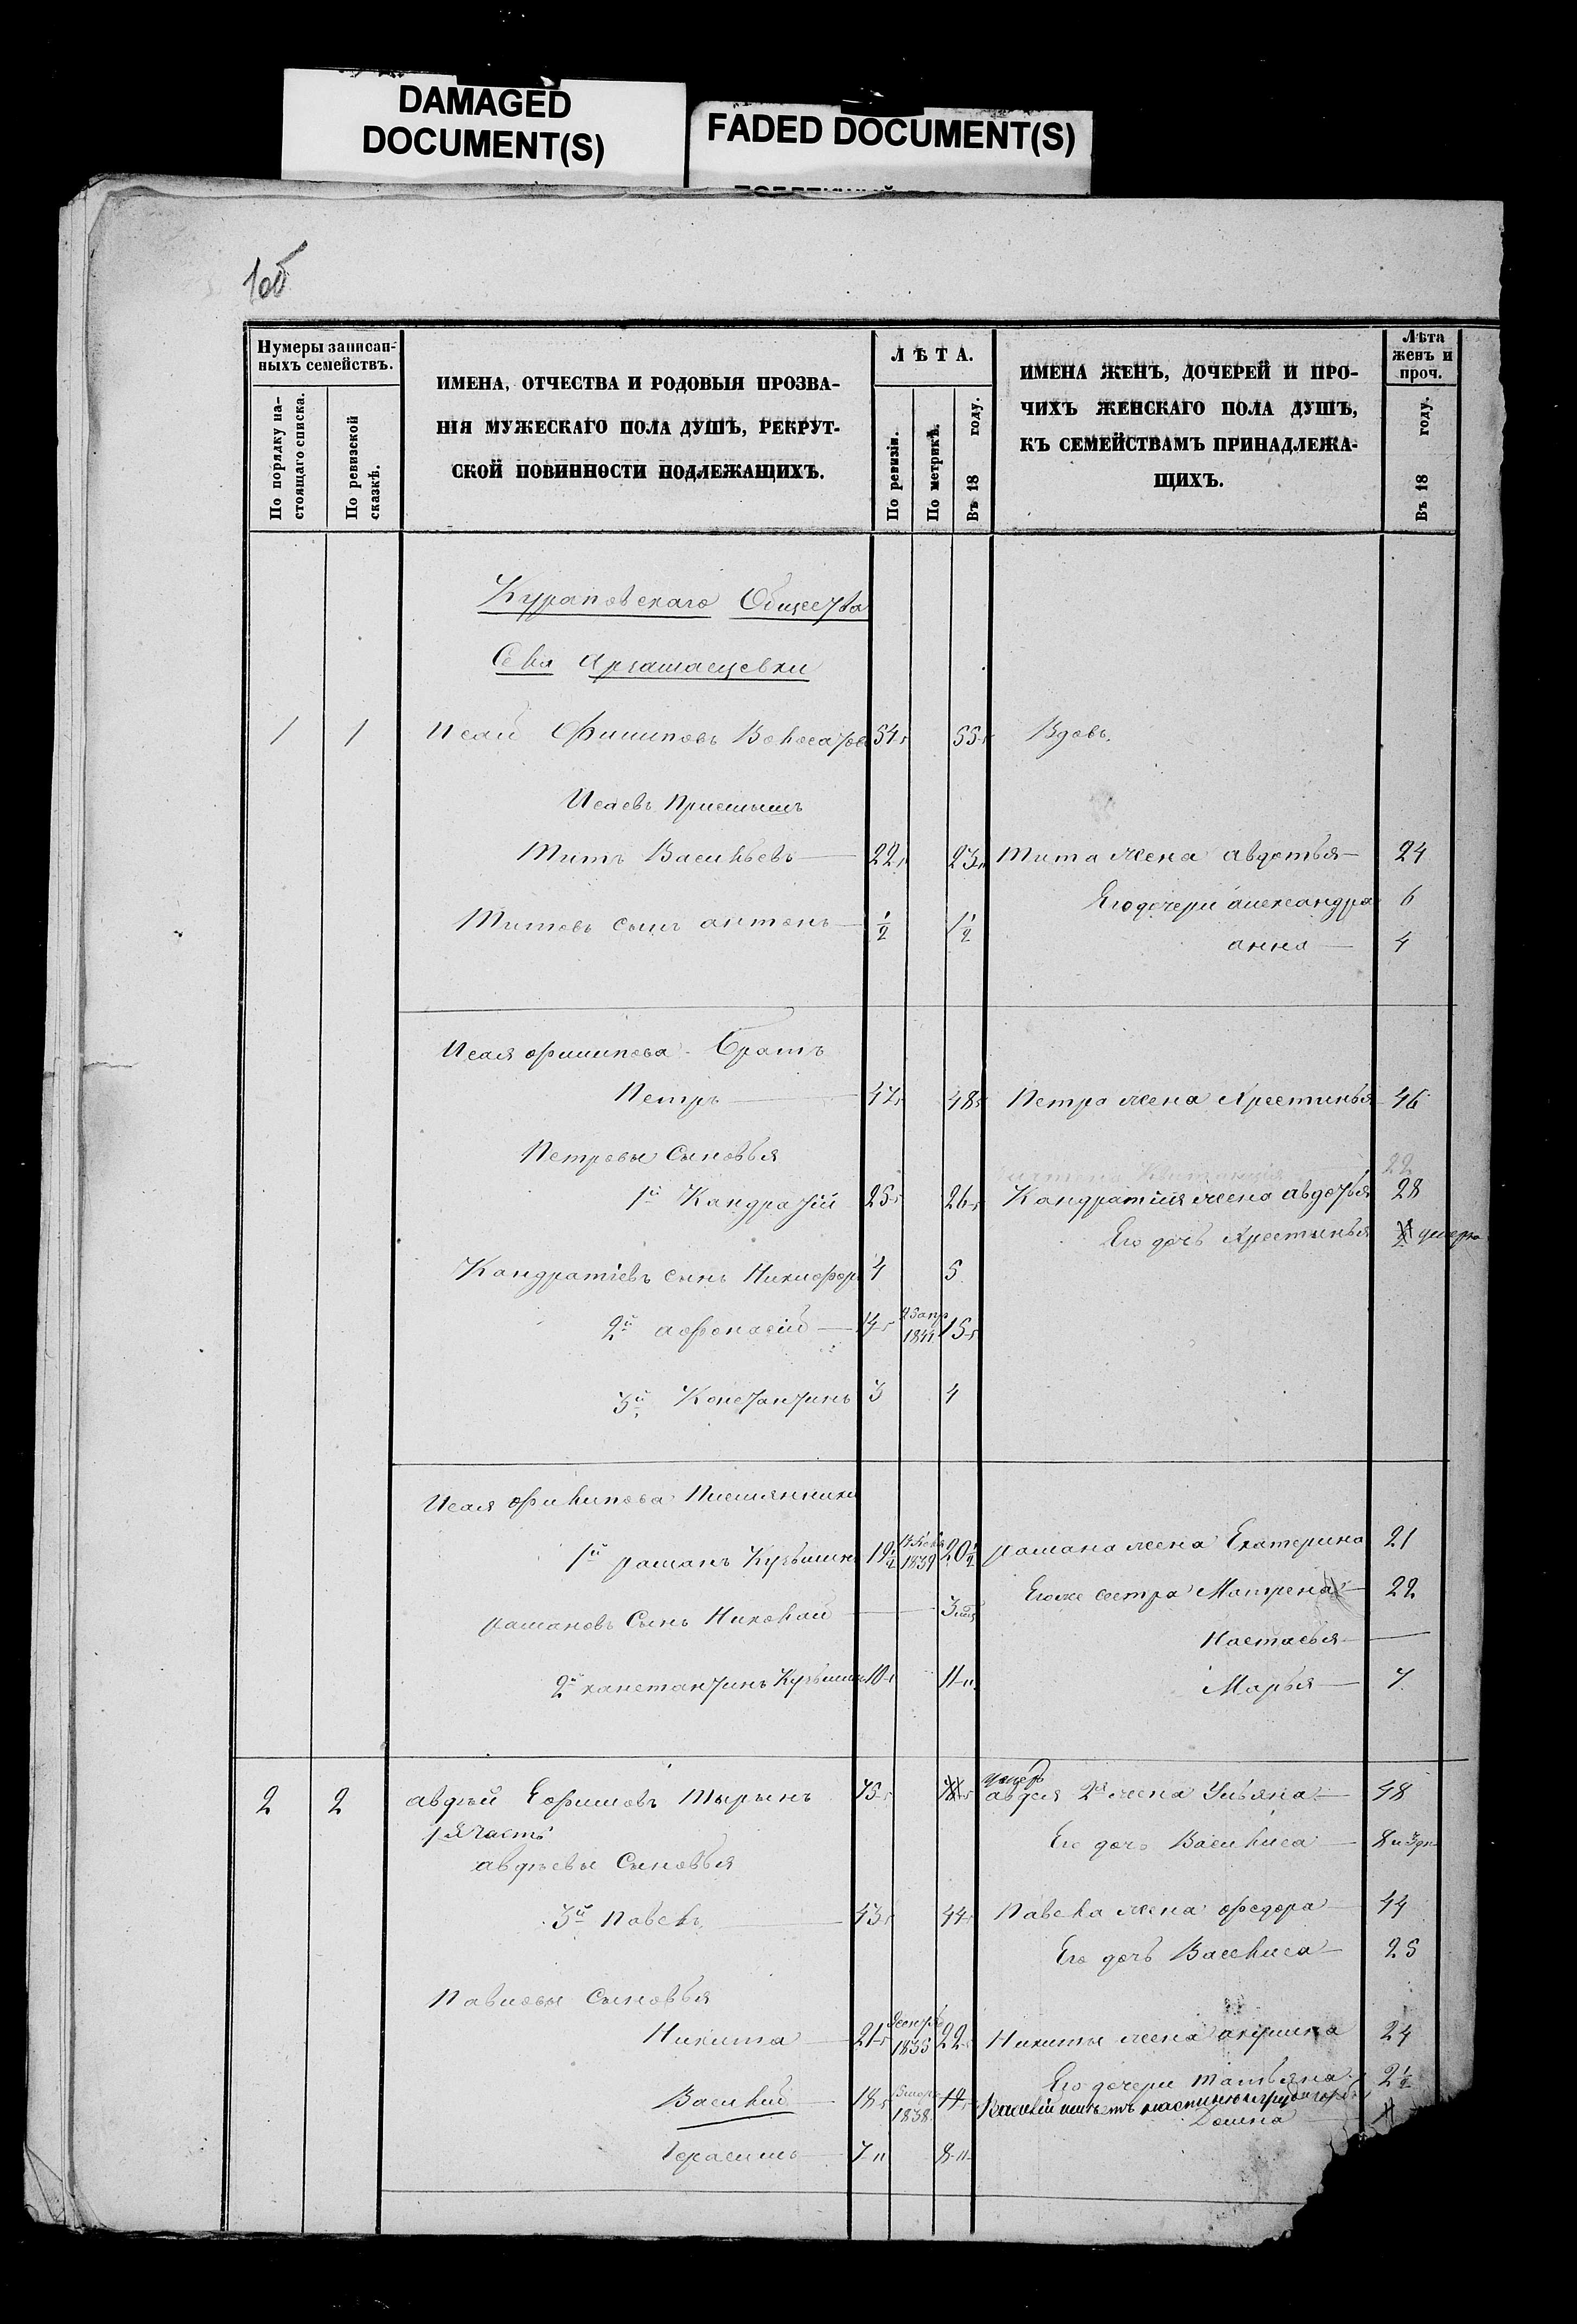 DAMAGED
DOCUMENT(S)
FADED DOCUMENT(S)
1об
Нумеры записан-
ныхъ семействъ.
По порядку на-
стоящаго списка.
По ревизской
сказкѣ.
ИМЕНА, ОТЧЕСТВА И РОДОВЫЯ ПРОЗВА-
НІЯ МУЖЕСКАГО ПОЛА ДУШЪ, РЕКРУТ-
СКОЙ ПОВИННОСТИ ПОДЛЕЖАЩИХЪ.
ЛѢТА.
По ревизіи.
По метрикѣ.
Въ 18 году.
ИМЕНА ЖЕНЪ, ДОЧЕРЕЙ И ПРО-
ЧИХЪ ЖЕНСКАГО ПОЛА ДУШЪ,
КЪ СЕМЕЙСТВАМЪ ПРИНАДЛЕЖА-
ЩИХЪ.
Лѣта
женъ и
проч.
Въ 18 году.
Кураповскаго Общества
Села
1 1 Исай Филиповъ 54 55 Вдовъ.
Исаевъ Приемышъ
Титъ Васильевъ 22 23 Тита жена авдотья 24
Его дочери александра 6
Титовъ сынъ антонъ 1/2 1 1/2
анна 4
Исая филипова Братъ
Петръ 47 48 Петра жена Хрестинья 46
Петровы Сыновья
22
1й Кандратій 25 26 Кандратія жена авдотья 28
Его дочь Хрестинья
Кандратіевъ сынъ Никифоръ 4 5
2й афонасій 14 15
3й Константинъ 3 4
Исая филипова Племянники
1й раманъ Кузьминъ 19 1/2 1839 20 1/2 рамана жена Екатерина 21
Егоже сестра Матрена 22
рамановъ Сынъ Николай 3
Настасья
2й канстантинъ Кузьминъ 10 11 Марья 7
умер
2 2 авдѣй Ефимовъ Тырынъ 75 авдея 2я жена Ульяна 48
1я часть
Его дочь Василиса 8
авдѣевы Сыновья
3й Павелъ 43 44 Павела жена федора 44
Его дочь Василиса 25
Павловы Сыновья
Никита 21 1835 22 Никиты жена акулина 24
Его дочери татьяна 2 1/2
Василій 18 1838 19
Домна
Герасимъ 7 8